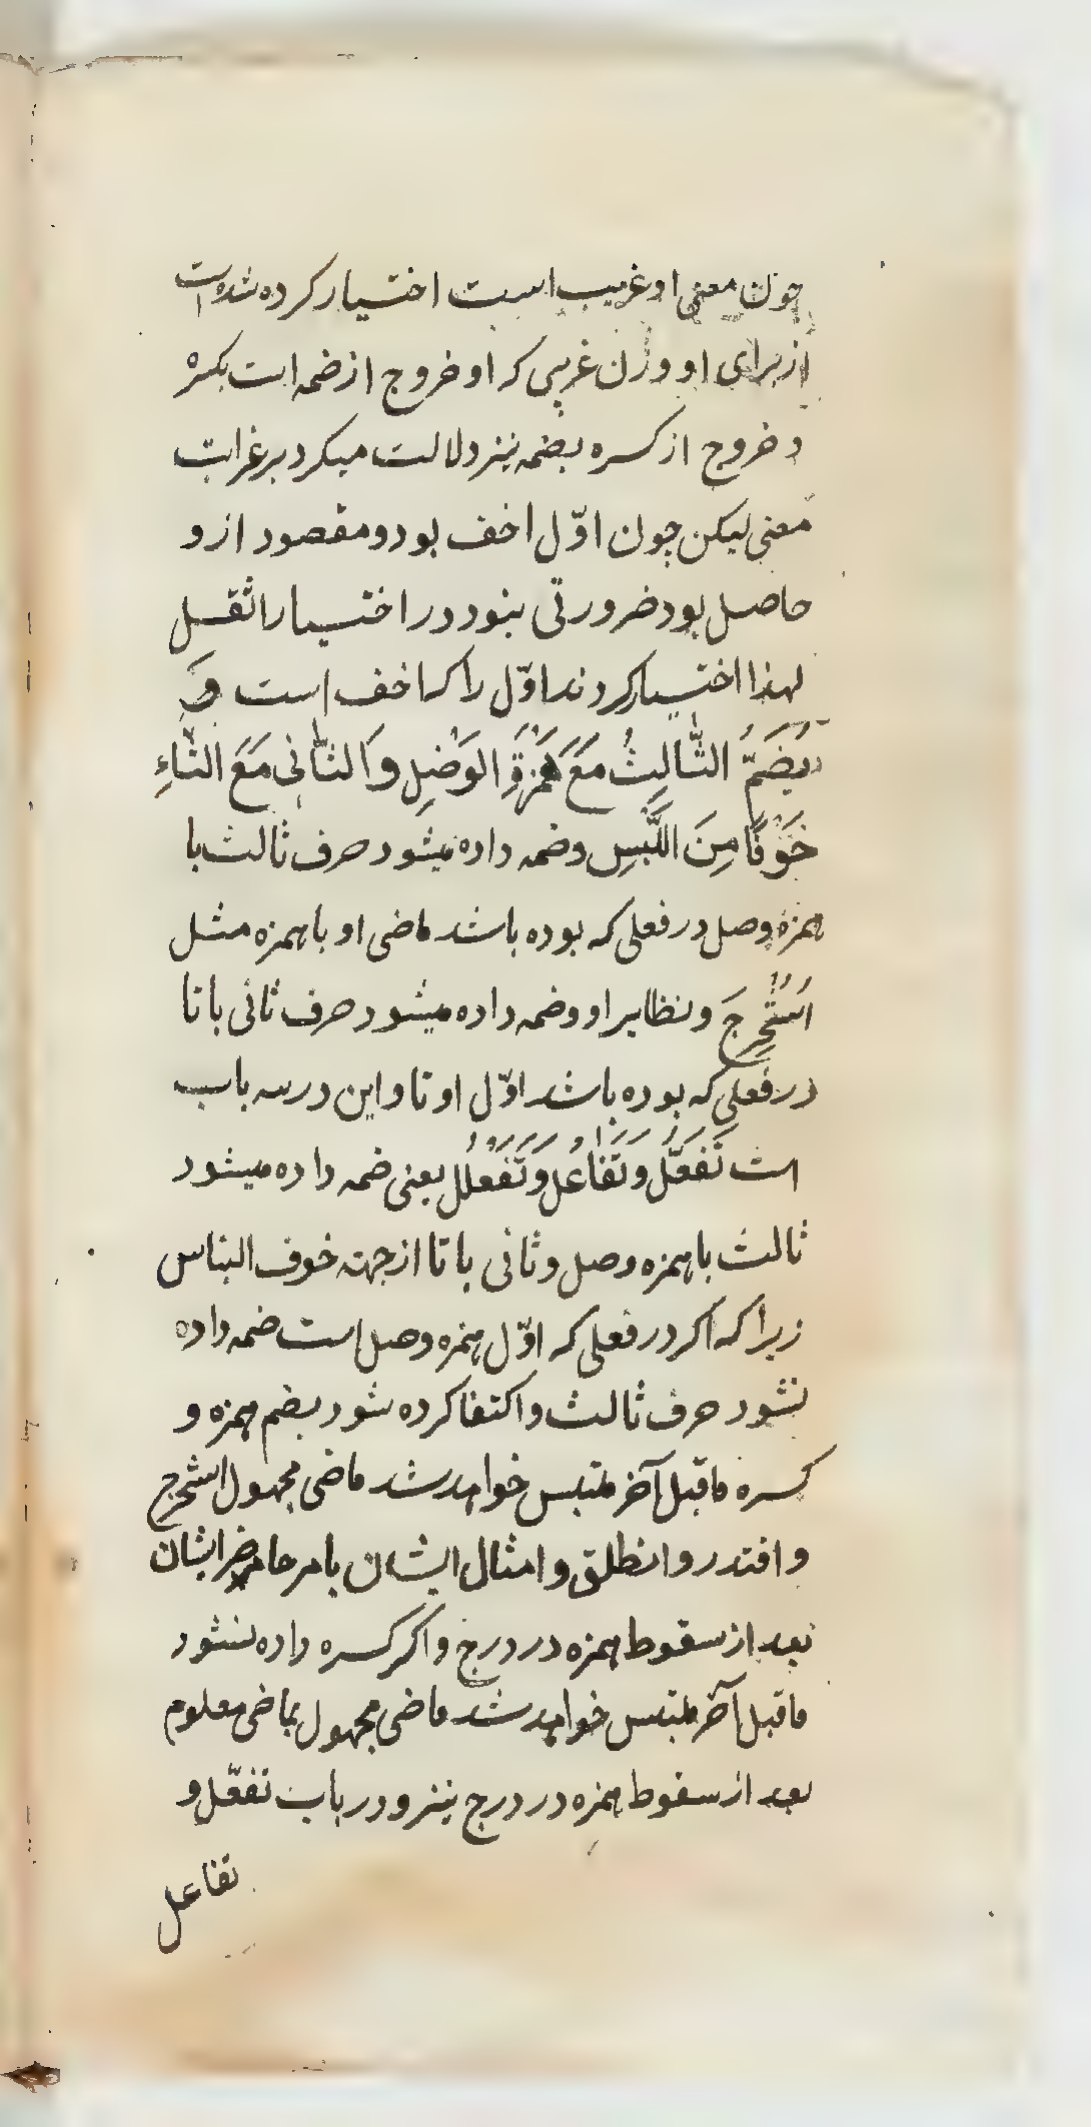 چون معنی او غریب است اختیار کرده شده است
از برای او وزن غریبی که او خروج از ضمه است بکسره
و خروج از کسره بضمه نیز دلالت میکرد بر غرابت
معنی لیکن چون اوّل اخف بود و مقصود ازو
حاصل بود ضرورتی نبود در اختیار اثقل
لهذا اختیار کردند اوّل را که اخف است وَ
یُضَمُّ الثّالِثُ مَعَ هَمْزَةِ الوَصْلِ وَالثّانی مَعَ التّاءِ
خَوْفًا مِنَ اللَّبْسِ و ضمه داده میشود حرف ثالث با
همزه وصل در فعلی که بوده باشد ماضی او با همزه مثل
اُسْتُخْرِجَ و نظایر او و ضمه داده میشود حرف ثانی با تا
در فعلی که بوده باشد اوّل او تا و این در سه باب
است تَفَعُّل و تَفَاعُل و تَفَعْلُل یعنی ضمه داده میشود
ثالث با همزه وصل و ثانی با تا از جهته خوف التباس
زیرا که اکر در فعلی که اوّل همزه وصل است ضمه داده
نشود حرف ثالث و اکتفا کرده شود بضم همزه و
کسره ماقبل آخر ملتبس خواهد شد ماضی مجهول استخرج
و افتدر و انطلق و امثال ایشان بامر حاضر ایشان
بعد از سقوط همزه در درج و اکر کسره داده نشود
ماقبل آخر ملتبس خواهد شد ماضی مجهول بماضی معلوم
بعد از سقوط همزه در درج نیز و در باب تفعّل و
تفاعل